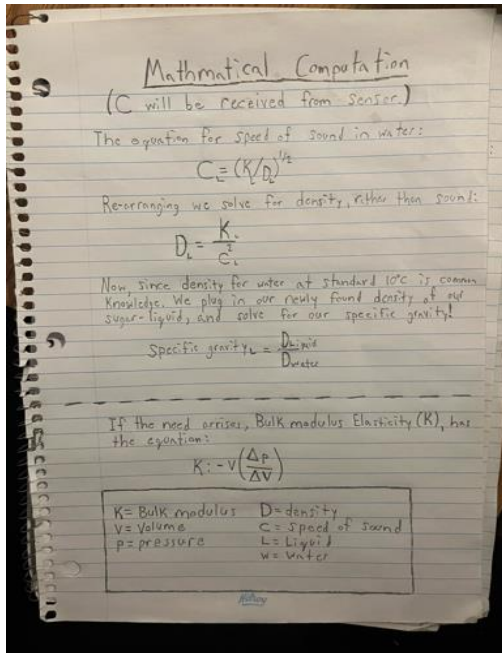 Mathmatical Computation
(C will be received from senser.)
The equation for speed of sound in water:
C_L = (K_L/D_L)^1/2
Re-arranging we solve for density, rather than sound:
D_L = K_L / C_L^2
Now, since density for water at standard 10°C is common
knowledge. We plug in our newly found density of our
sugar-liquid, and solve for our specific gravity!
Specific gravity_L = D_Liquid / D_water
If the need arrises, Bulk modulus Elasticity (K), has
the equation:
K: -V(Δp/ΔV)
K= Bulk modulus D=density
V= Volume C= speed of sound
p= pressure L= Liquid
w= water
Hilroy